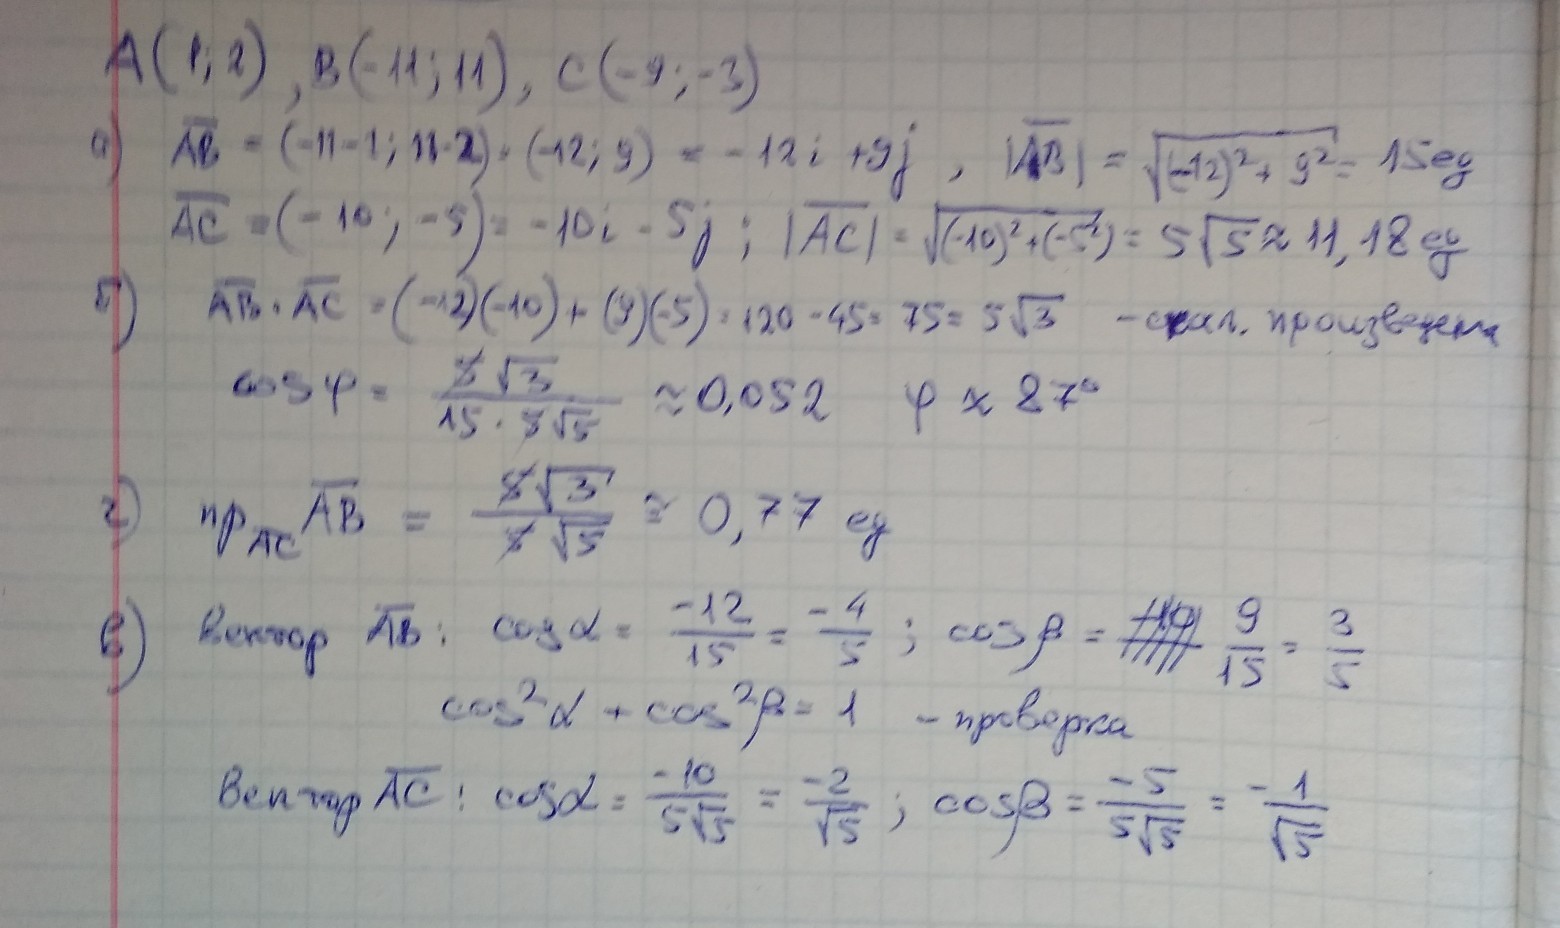 A(1; 2), B(-11; 11), C(-9; -3)
а) AB = (-11-1; 11-2) = (-12; 9) = -12i + 9j , |AB| = √((-12)² + 9²) = 15 ед
AC = (-10; -5) = -10i - 5j ; |AC| = √((-10)² + (-5²)) = 5√5 ≈ 11,18 ед
б) AB · AC = (-12)(-10) + (9)(-5) = 120 - 45 = 75 = 5√3 - скал. произведение
cos φ = 5√3 / 15 · 5√5 ≈ 0,052 φ ≈ 87°
г) пр AC AB = 5√3 / 5√5 ≈ 0,77 ед
в) Вектор AB: cos α = -12/15 = -4/5 ; cos β = 9/15 = 3/5
cos²α + cos²β = 1 - проверка
Вектор AC: cos α = -10/5√5 = -2/√5 ; cos β = -5/5√5 = -1/√5